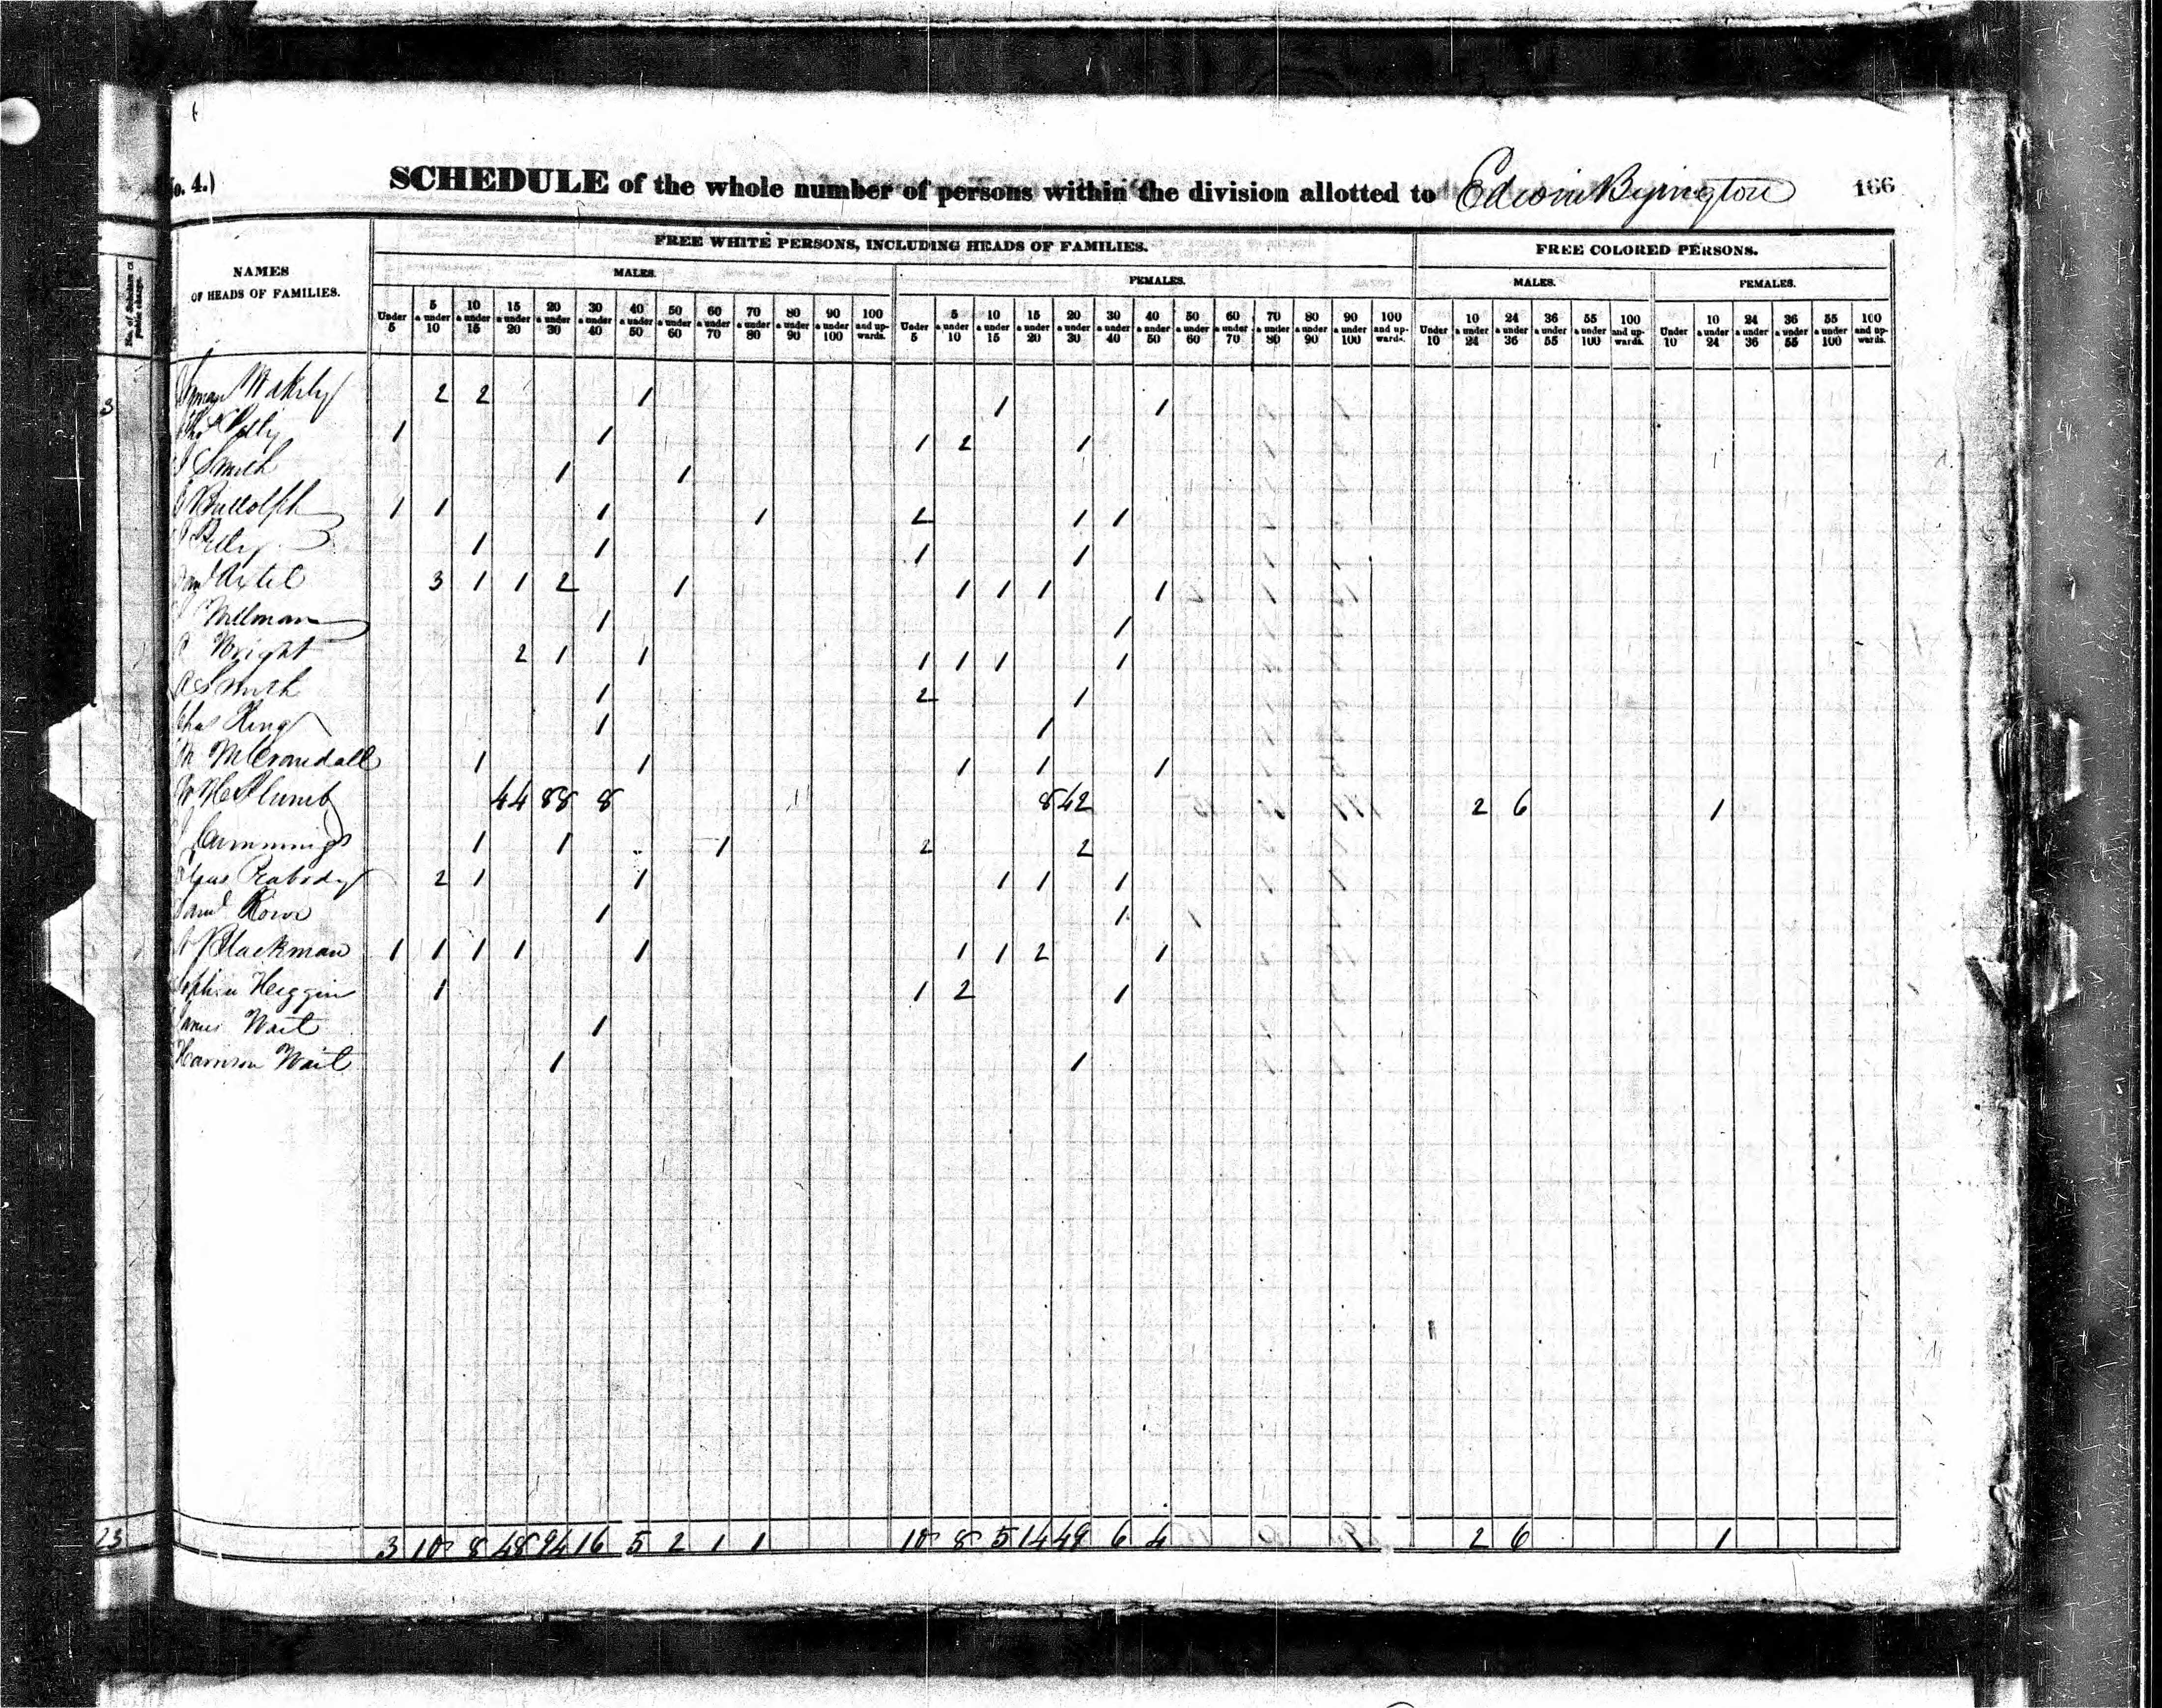 o. 4.)
SCHEDULE of the whole number of persons within the division allotted to Edwin Byington 166
No. of Scholars at public charge.
NAMES OF HEADS OF FAMILIES.
FREE WHITE PERSONS, INCLUDING HEADS OF FAMILIES.
FREE COLORED PERSONS.
MALES. FEMALES. MALES. FEMALES.
Under 5 | 5 & under 10 | 10 & under 15 | 15 & under 20 | 20 & under 30 | 30 & under 40 | 40 & under 50 | 50 & under 60 | 60 & under 70 | 70 & under 80 | 80 & under 90 | 90 & under 100 | 100 and upwards. | Under 5 | 5 & under 10 | 10 & under 15 | 15 & under 20 | 20 & under 30 | 30 & under 40 | 40 & under 50 | 50 & under 60 | 60 & under 70 | 70 & under 80 | 80 & under 90 | 90 & under 100 | 100 and upwards. | Under 10 | 10 & under 24 | 24 & under 36 | 36 & under 55 | 55 & under 100 | 100 and upwards. | Under 10 | 10 & under 24 | 24 & under 36 | 36 & under 55 | 55 & under 100 | 100 and upwards.
3 2 2 1 1 1
1 1 1 2 1
Smith 1 1
1 1 1 1 2 1 1
1 1 1 1
Axtel 3 1 1 2 1 1 1 1 1
1 1
Wright 2 1 1 1 1 1 1
Smith 1 2 1
Chas King 1 1
McCrandall 1 1 1 1 1
Plumb 44 88 8 8 42 2 6 1
Cummings 1 1 1 2 2
Peabody 2 1 1 1 1 1
Saml Rowe 1 1
Blackman 1 1 1 1 1 1 1 2 1
Heggin 1 1 2 1
James Wait 1
Harrison Wait 1 1
23 3 10 8 48 94 16 5 2 1 1 10 8 5 14 49 6 4 2 6 1